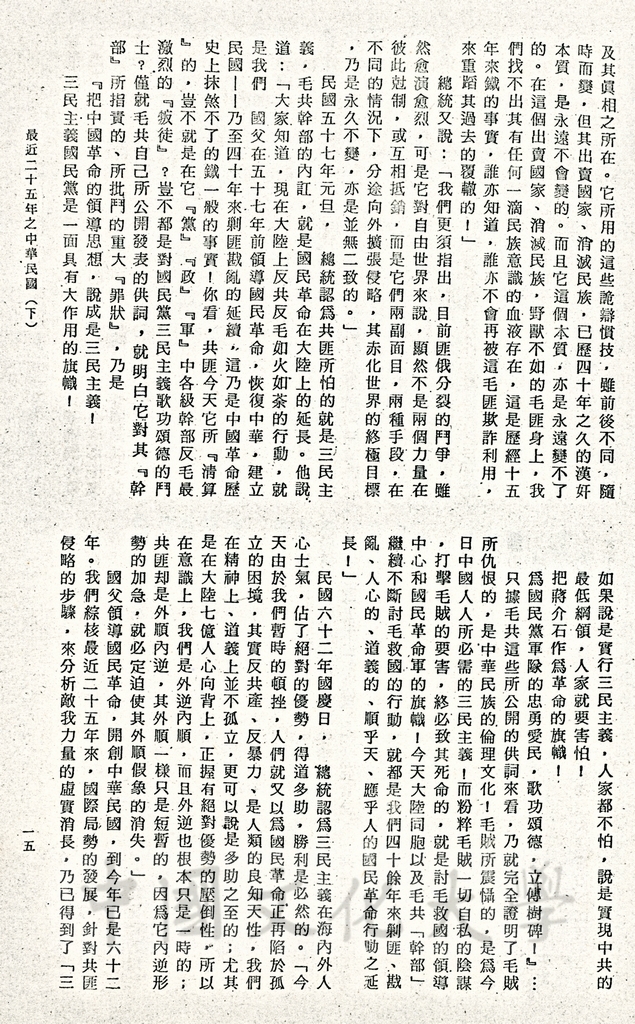 及其眞相之所在。它所用的這些詭辯慣技，雖前後不同，隨
時而變，但其出賣國家、消滅民族，已歷四十年之久的漢奸
本質，是永遠不會變的。而且它這個本質，亦是永遠變不了
的。在這個出賣國家、消滅民族，野獸不如的毛匪身上，我
們找不出其有任何一滴民族意識的血液存在，這是歷經十五
年來鐵的事實，誰亦知道，誰亦不會再被這毛匪欺詐利用，
來重蹈其過去的覆轍的！」
總統又說：「我們更須指出，目前匪俄分裂的鬥爭，雖
然愈演愈烈，可是它對自由世界來說，顯然不是兩個力量在
彼此尅制，或互相抵銷，而是它們兩副面目，兩種手段，在
不同的情況下，分途向外擴張侵略，其赤化世界的終極目標
，乃是永久不變，亦是並無二致的。」
民國五十七年元旦，　總統認爲共匪所怕的就是三民主
義，毛共幹部的內訌，就是國民革命在大陸上的延長。他說
道：「大家知道，現在大陸上反共反毛如火如荼的行動，就
是我們　國父在五十七年前領導國民革命，恢復中華，建立
民國——乃至四十年來剿匪戡亂的延續，這乃是中國革命歷
史上抹煞不了的鐵一般的事實！你看，共匪今天它所『清算
』的，豈不就是在它『黨』『政』『軍』中各級幹部反毛最
激烈的『叛徒』？豈不都是對國民黨三民主義歌功頌德的鬥
士？僅就毛共自己所公開發表的供詞，就明白它對其『幹
部』所指責的、所批鬥的重大『罪狀』，乃是
『把中國革命的領導思想，說成是三民主義！
三民主義國民黨是一面具有大作用的旗幟！
如果說是實行三民主義，人家都不怕，說是實現中共的
最低綱領，人家就要害怕！
把蔣介石作爲革命的旗幟！
爲國民黨軍隊的忠勇愛民，歌功頌德，立傳樹碑！』…
只據毛共這些所公開的供詞來看，乃就完全證明了毛賊
所仇恨的，是中華民族的倫理文化！毛賊所震懾的，是爲今
日中國人人所必需的三民主義！而粉粹毛賊一切自私的陰謀
，打擊毛賊的要害，終必致其死命的，就是討毛救國的領導
中心和國民革命軍的旗幟！今天大陸同胞以及毛共「幹部」
繼續不斷討毛救國的行動，就都是我們四十餘年來剿匪、戡
亂、人心的、道義的、順乎天、應乎人的國民革命行動之延
長！」
民國六十二年國慶日，　總統認爲三民主義在海內外人
心士氣，佔了絕對的優勢，得道多助，勝利是必然的。「今
天由於我們暫時的頓挫，人們就又以爲國民革命正再陷於孤
立的困境，其實反共產、反暴力、是人類的良知天性，我們
在精神上、道義上並不孤立，更可以說是多助之至的；尤其
是在大陸七億人心向背上，正握有絕對優勢的壓倒性，所以
在意識上，我們是外逆內順，而且外逆也根本只是一時的；
共匪却是外順內逆，其外順一樣只是短暫的，因爲它內逆形
勢的加急，就必定迫使其外順假象的消失。」
國父領導國民革命，開創中華民國，到今年已是六十二
年。我們綜核最近二十五年來，國際局勢的發展，針對共匪
侵略的步驟，來分析敵我力量的虛實消長，乃已得到了「三
最近二十五年之中華民國（下）
一五
中國文化大學